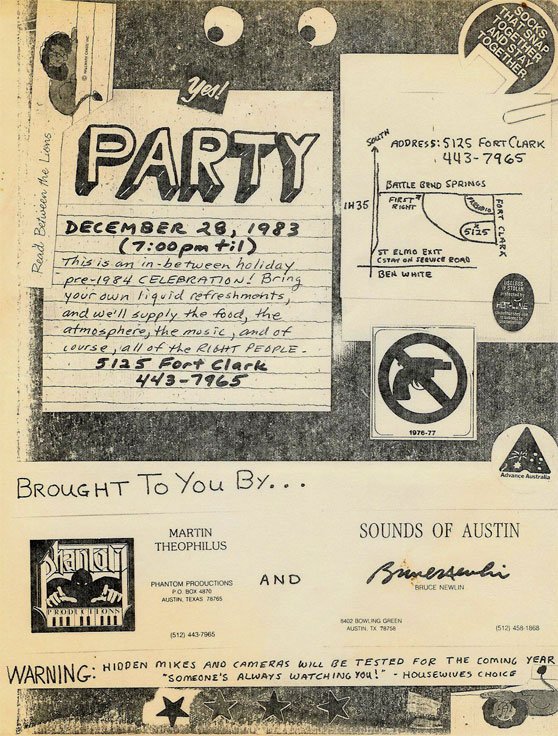 SOCKS
THAT SNAP
TOGETHER
AND STAY
TOGETHER
Yes!
Read Between the Lions
PARTY
DECEMBER 28, 1983
(7:00 pm til)
This is an in-between holiday
pre-1984 CELEBRATION! Bring
your own liquid refreshments,
and we'll supply the food, the
atmosphere, the music, and of
course, all of the RIGHT PEOPLE.
5125 Fort Clark
443-7965
SOUTH
ADDRESS: 5125 FORT CLARK
443-7965
BATTLE BEND SPRINGS
IH35
FIRST
RIGHT
PRESIDIO
5125
FORT CLARK
ST ELMO EXIT
(STAY ON SERVICE ROAD
BEN WHITE
USELESS
IF STOLEN
HOT-LINE
1976-77
Advance Australia
BROUGHT TO YOU BY...
Phantom
PRODUCTIONS
MARTIN
THEOPHILUS
PHANTOM PRODUCTIONS
P.O. BOX 4870
AUSTIN, TEXAS 78765
(512) 443-7965
AND
SOUNDS OF AUSTIN
Bruce Newlin
BRUCE NEWLIN
8402 BOWLING GREEN
AUSTIN, TX 78758
(512) 458-1868
WARNING: HIDDEN MIKES AND CAMERAS WILL BE TESTED FOR THE COMING YEAR
"SOMEONE'S ALWAYS WATCHING YOU!" - HOUSEWIVES CHOICE